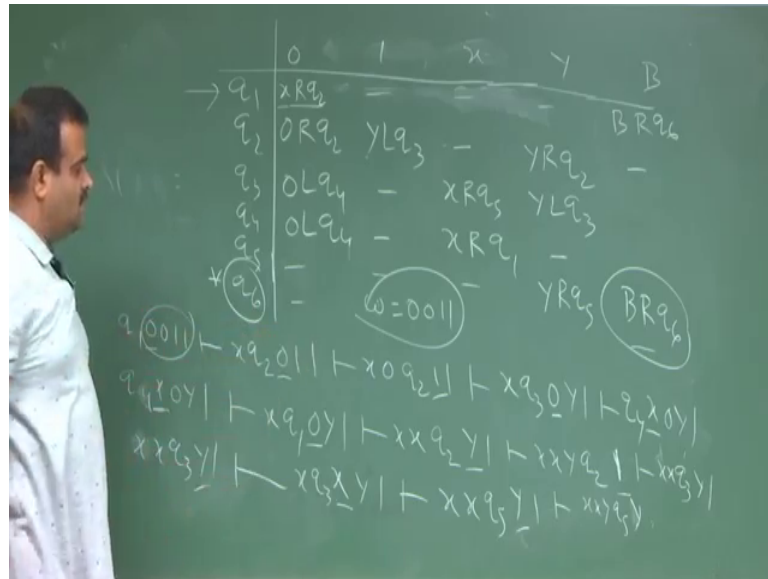 0 1 x Y B
→ q₁ xRq₂ – – – BRq₆
q₂ 0Rq₂ YLq₃ – YRq₂ –
q₃ 0Lq₄ – xRq₅ YLq₃
q₄ 0Lq₄ – xRq₁ –
q₅ – – – YRq₅ BRq₆
* q₆ –
ω=0011
q₁0011 ⊢ xq₂011 ⊢ x0q₂11 ⊢ xq₃0Y1 ⊢ q₄x0Y1
q₄x0Y1 ⊢ xq₁0Y1 ⊢ xxq₂Y1 ⊢ xxYq₂1 ⊢ xxq₃Y1
xxq₃Y1 ⊢ xq₃xY1 ⊢ xxq₅Y1 ⊢ xxYq₅Y